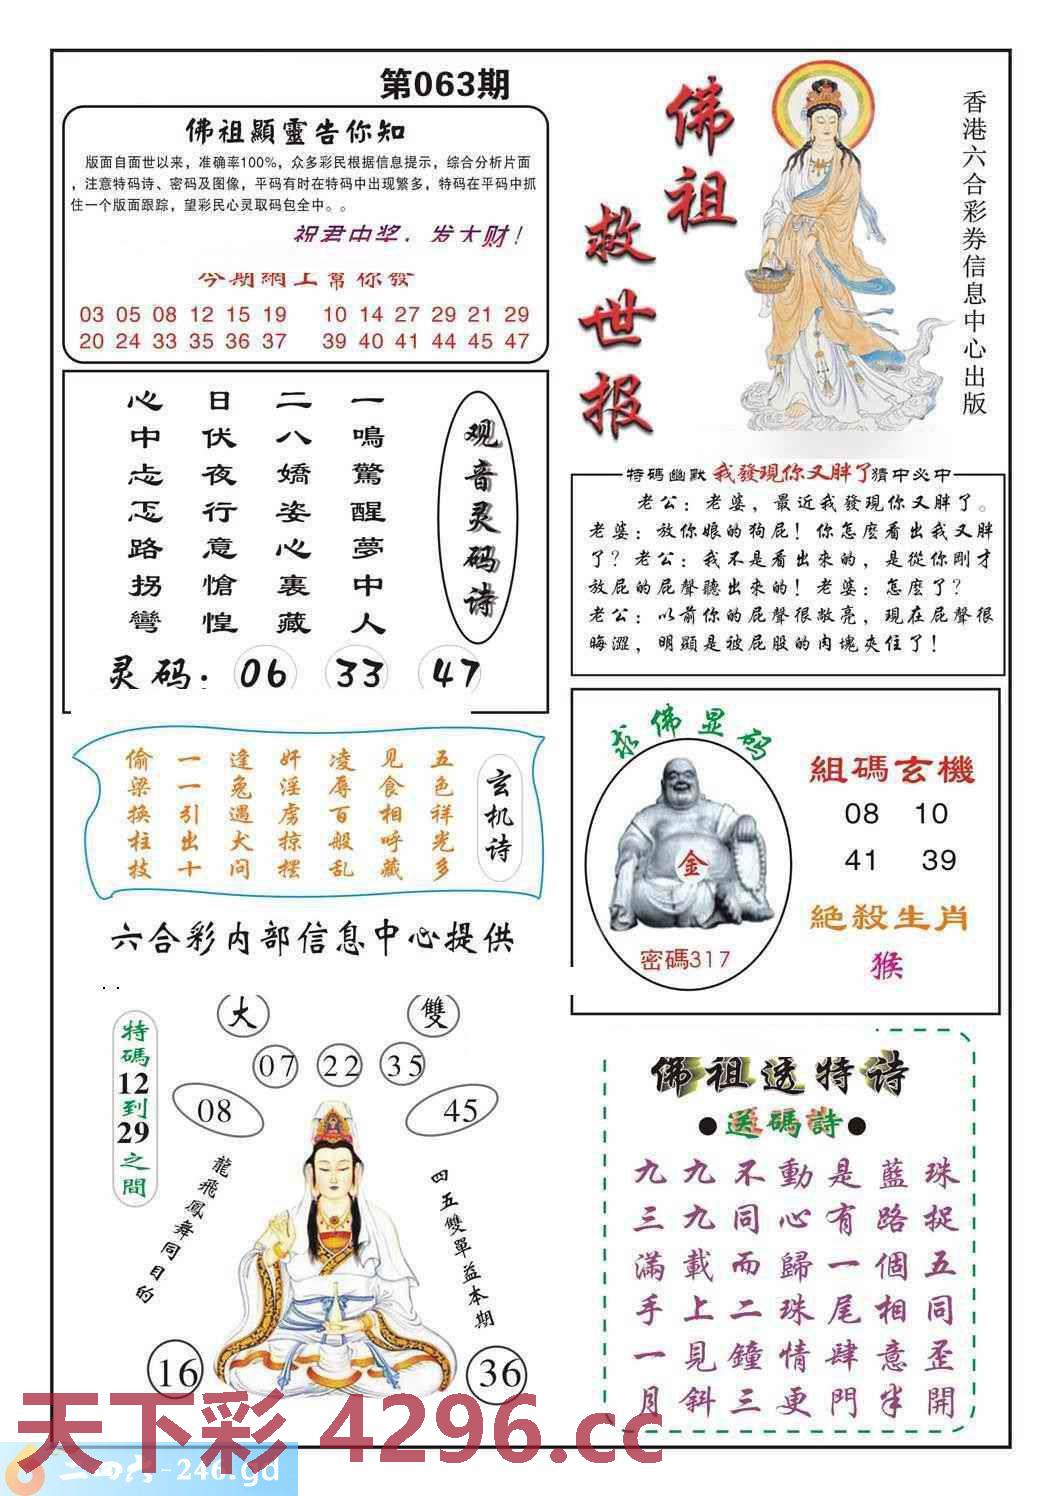 第063期
佛祖顯靈告你知
版面自面世以来，准确率100%，众多彩民根据信息提示，综合分析片面
，注意特码诗、密码及图像，平码有时在特码中出现繁多，特码在平码中抓
住一个版面跟踪，望彩民心灵取码包全中。。
祝君中奖，发大财！
今期網上幫你發
03 05 08 12 15 19 10 14 27 29 21 29
20 24 33 35 36 37 39 40 41 44 45 47
佛祖
救世报
香港六合彩券信息中心出版
观音灵码诗
一鳴驚醒夢中人
二八嬌姿心裏藏
日伏夜行意愴惶
心中忐忑路拐彎
灵码：06 33 47
特碼幽默 我發現你又胖了 猜中必中
老公：老婆，最近我發現你又胖了。
老婆：放你娘的狗屁！你怎麽看出我又胖
了？老公：我不是看出來的，是從你剛才
放屁的屁聲聽出來的！老婆：怎麽了？
老公：以前你的屁聲很敞亮，現在屁聲很
晦澀，明顯是被屁股的肉塊夾住了！
玄机诗
五色祥光多
见食相呼藏
凌辱百般乱
奸淫虏掠摆
逢兔遇犬问
一一引出十
偷梁换柱技
求佛显码
金
密碼317
組碼玄機
08 10
41 39
絕殺生肖
猴
六合彩内部信息中心提供
特碼12到29之間
大
雙
07 22 35
08
45
龍飛鳳舞同目的
四五雙單益本期
16
36
佛祖透特诗
●送碼詩●
九九不動是藍珠
三九同心有路捉
滿載而歸一個五
手上二珠尾相同
一見鐘情肆意歪
月斜三更門半開
天下彩 4296.cc
二四六-246.gd